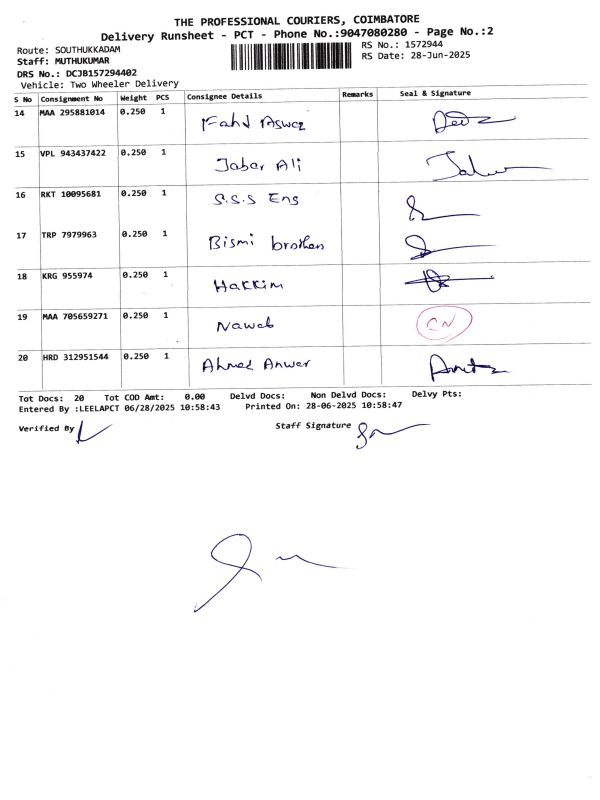 THE PROFESSIONAL COURIERS, COIMBATORE
Delivery Runsheet - PCT - Phone No.:9047080280 - Page No.:2
Route: SOUTHUKKADAM
RS No.: 1572944
Staff: MUTHUKUMAR
RS Date: 28-Jun-2025
DRS No.: DCJB157294402
Vehicle: Two Wheeler Delivery
S No Consignment No Weight PCS Consignee Details Remarks Seal & Signature
14 MAA 295881014 0.250 1 Fahd Aswaz
15 VPL 943437422 0.250 1 Jabar Ali
16 RKT 10095681 0.250 1 S.S.S Eng
17 TRP 7979963 0.250 1 Bismi brothers
18 KRG 955974 0.250 1 Hakkim
19 MAA 705659271 0.250 1 Naweb CN
20 HRD 312951544 0.250 1 Ahmed Anwar
Tot Docs: 20 Tot COD Amt: 0.00 Delvd Docs: Non Delvd Docs: Delvy Pts:
Entered By :LEELAPCT 06/28/2025 10:58:43 Printed On: 28-06-2025 10:58:47
Verified By Staff Signature